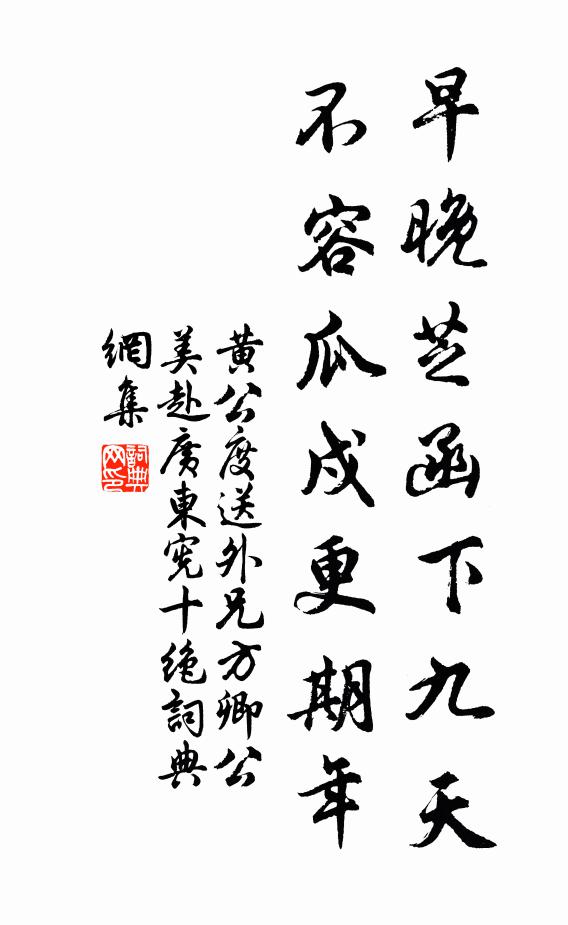 早晚芝函下九天
不容瓜戍更期年
黃公度送外兄方卿公
美赴廣東憲十絕詞典
網集
詞典
网印